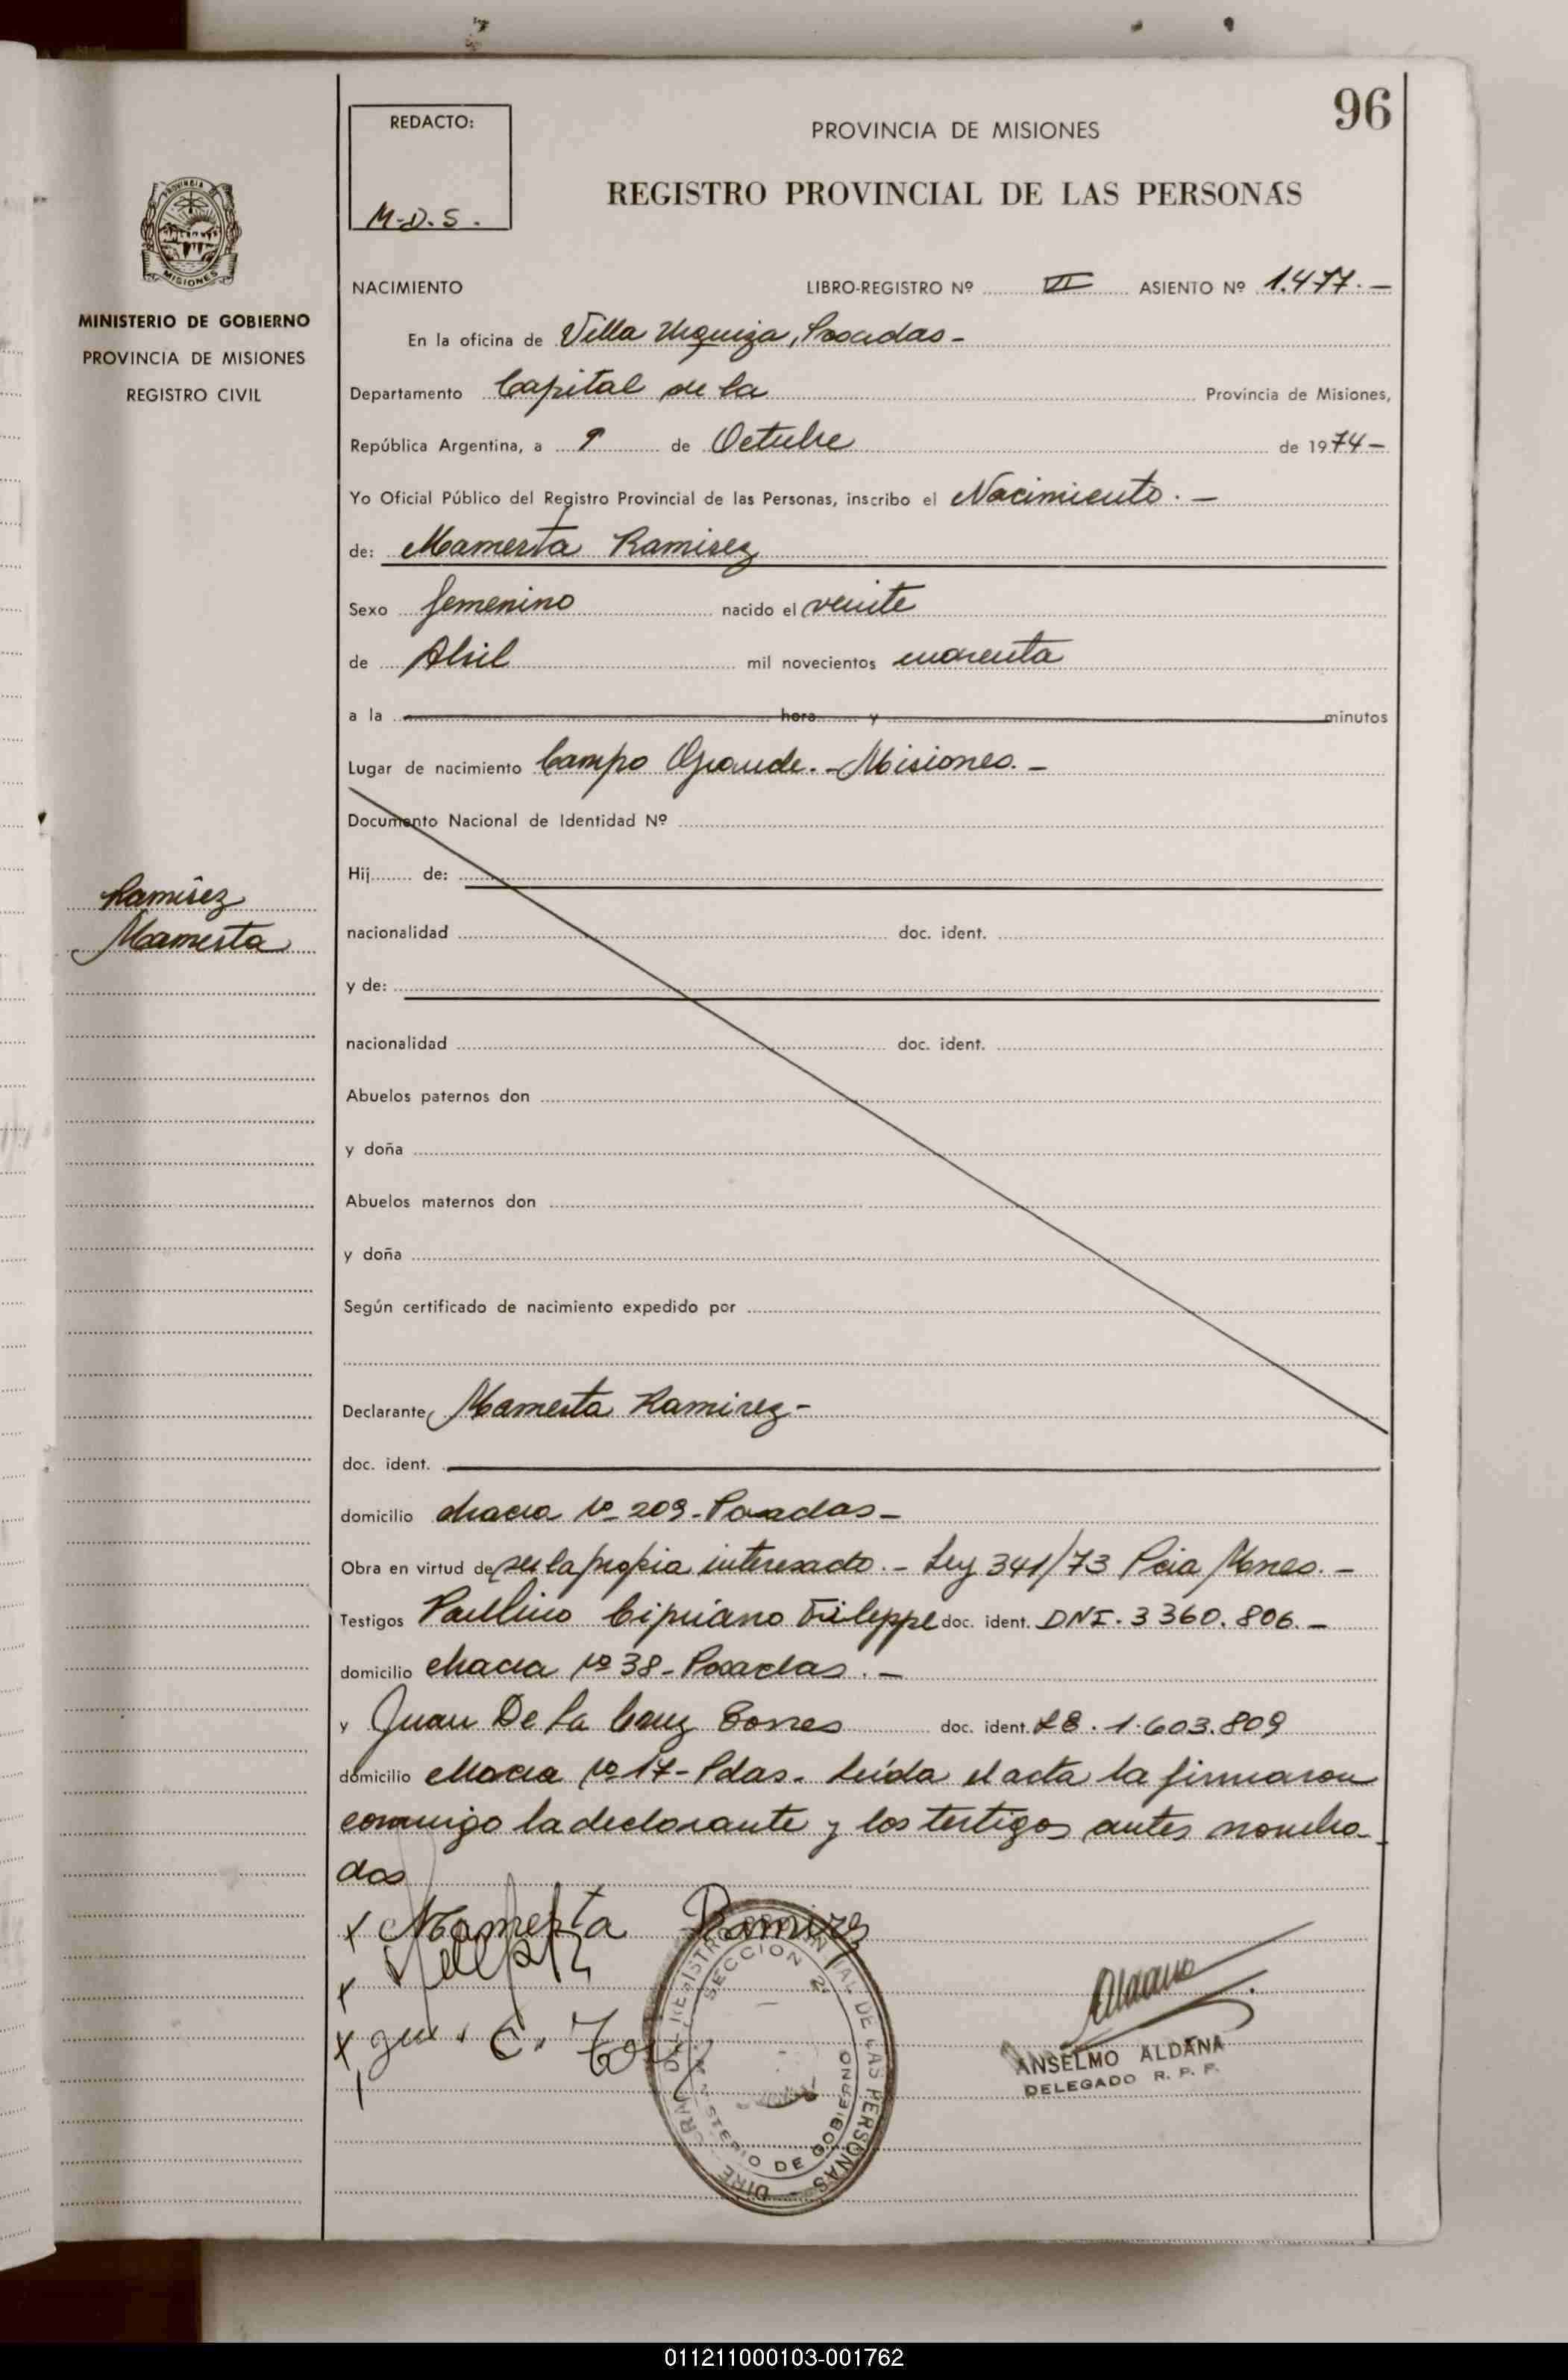 96
REDACTO:
M.D.S.
PROVINCIA DE MISIONES
REGISTRO PROVINCIAL DE LAS PERSONAS
PROVINCIA DE
MISIONES
MINISTERIO DE GOBIERNO
PROVINCIA DE MISIONES
REGISTRO CIVIL
NACIMIENTO LIBRO-REGISTRO Nº VI ASIENTO Nº 1.477.—
En la oficina de Villa Urquiza, Posadas-
Departamento Capital de la Provincia de Misiones,
República Argentina, a 9 de Octubre de 1974-
Yo Oficial Público del Registro Provincial de las Personas, inscribo el Nacimiento.—
de: Mamerta Ramirez
Sexo femenino nacido el veinte
de Abril mil novecientos cuarenta
a la hora y minutos
Lugar de nacimiento Campo Grande.-Misiones.-
Documento Nacional de Identidad Nº
Hij de:
Ramirez
Mamerta
nacionalidad doc. ident.
y de:
nacionalidad doc. ident.
Abuelos paternos don
y doña
Abuelos maternos don
y doña
Según certificado de nacimiento expedido por
Declarante Mamerta Ramirez-
doc. ident.
domicilio chacra Nº 209-Posadas-
Obra en virtud de ser la propia interesada.- Ley 341/73 Pcia Mnes.-
Testigos Paulino Cipriano doc. ident. DNI. 3360.806.-
domicilio chacra Nº 38-Posadas.-
y Juan De la Cruz Torres doc. ident. LE. 1.603.809
domicilio chacra Nº 17-Pdas. Leída el acta la firmaron
conmigo la declarante y los testigos antes nombra-
dos
x Mamerta Ramirez
x
x C. Tor
DIRE GRAL DEL REGISTRO PROVINCIAL DE LAS PERSONAS
SECCION 2
MINISTERIO DE GOBIERNO
Aldana
ANSELMO ALDANA
DELEGADO R. P. P.
011211000103-001762